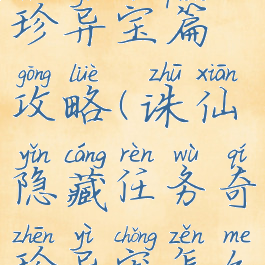 珍异宝篇
gōng lüè zhū xiān
攻略(诛仙
yǐn cáng rèn wù qí
隐藏任务奇
zhēn yì chǒng zěn me
珍异宠怎么